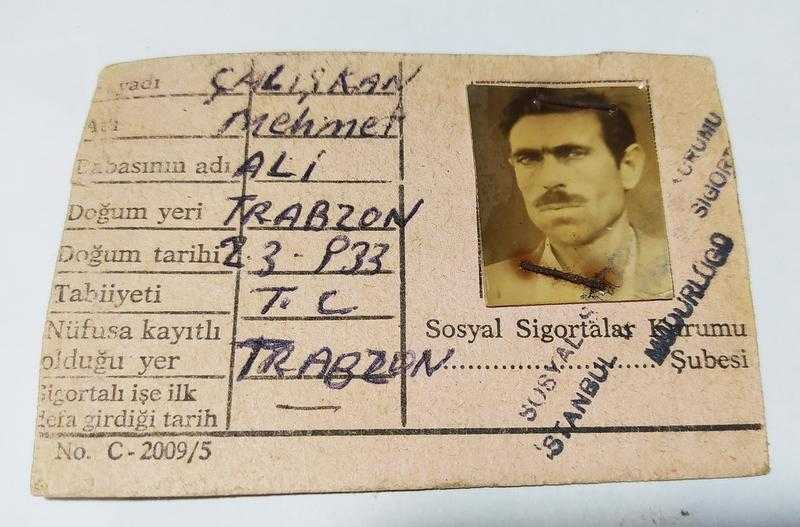 Soyadı ÇALIŞKAN
Adı Mehmet
Babasının adı ALİ
Doğum yeri TRABZON
Doğum tarihi 2.3.933
Tabiiyeti T.C
Nüfusa kayıtlı
olduğu yer TRABZON
Sigortalı işe ilk
defa girdiği tarih —
No. C-2009/5
Sosyal Sigortalar Kurumu
........................ Şubesi
SOSYAL SİGORT
KURUMU
İSTANBUL MÜDÜRLÜĞÜ